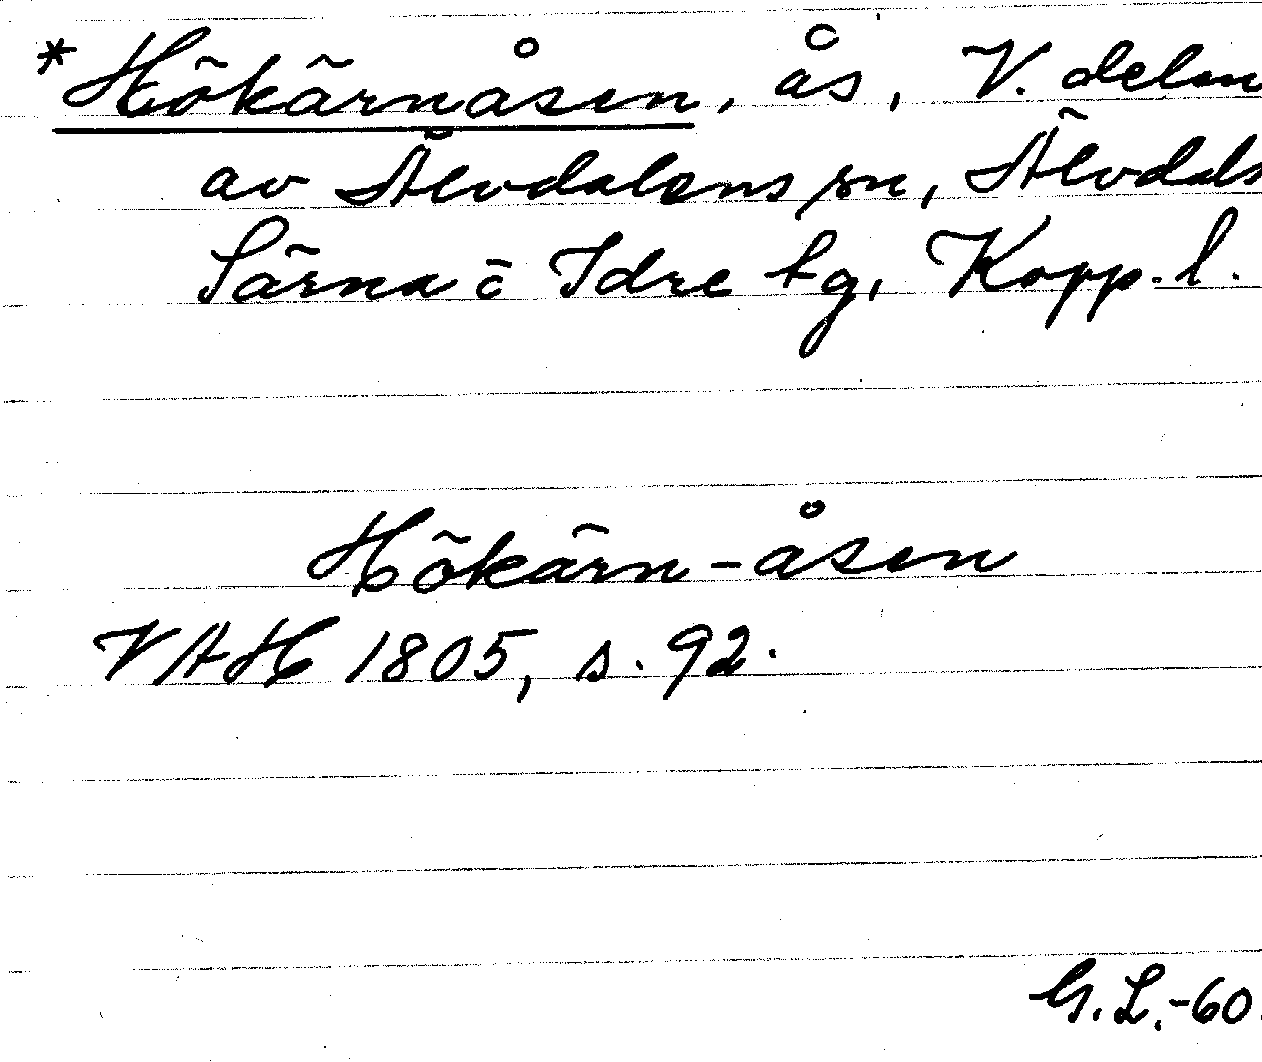 *Hökärnåsen, ås, V. delen
av Älvdalens sn, Älvdals
Särna o Idre tg, Kopp. l.
Hökärn-åsen
VAH 1805, s. 92.
G.L.-60.